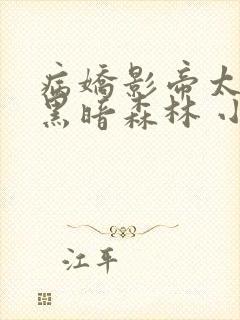 病嬌影帝太
黑暗森林 小
江平